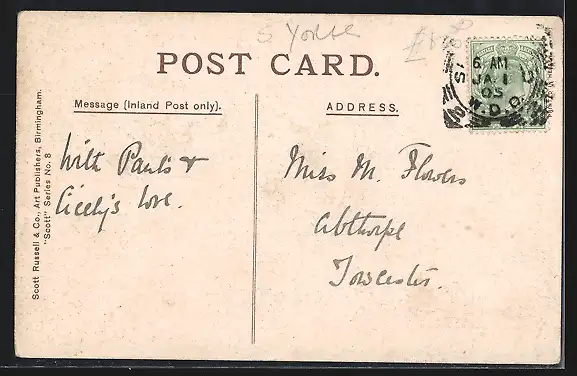 S Yorke
POST CARD.
Message (Inland Post only).
ADDRESS.
6 AM
JA 1
05
W.D.O
With Paul's &
Cicely's love.
Miss M. Flowers
Abthorpe
Towcester.
Scott Russell & Co., Art Publishers, Birmingham.
"Scott" Series No. 8